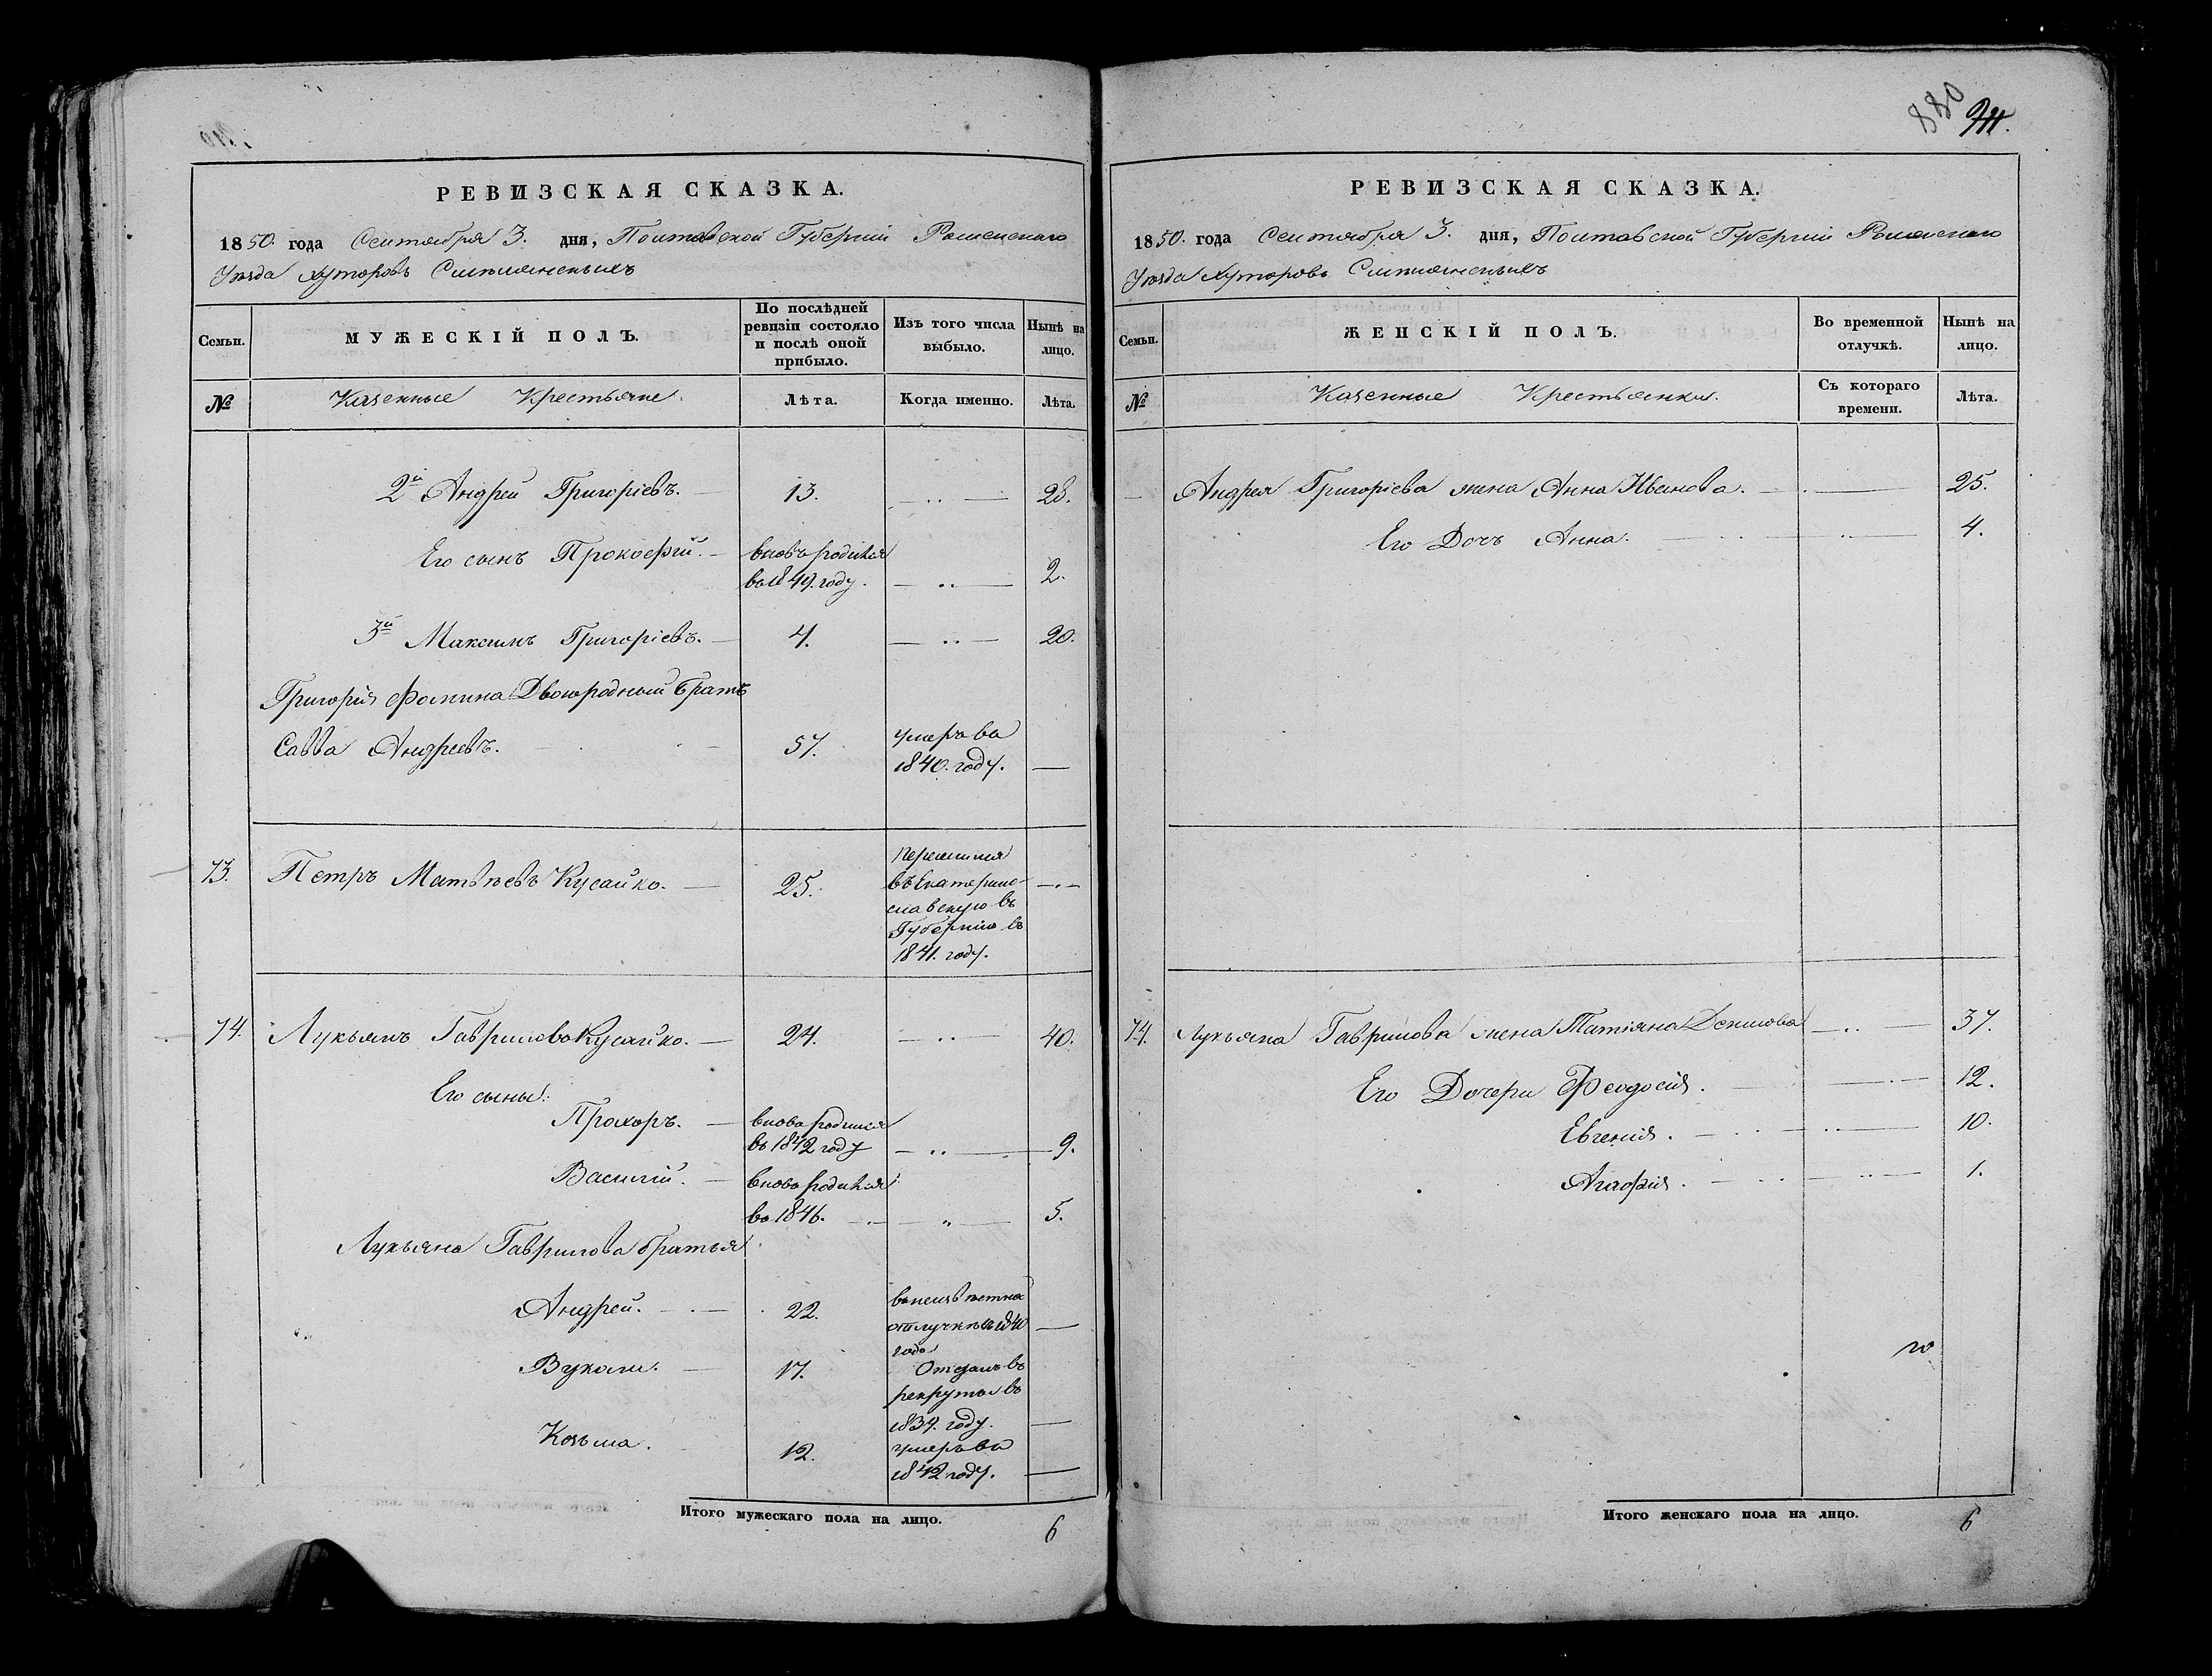 880
РЕВИЗСКАЯ СКАЗКА.
1850. года Сентября 3. дня, Полтавской Губерніи Роменского
Уѣзда хуторовъ
Семьи.
МУЖЕСКІЙ ПОЛЪ.
По послѣдней ревизіи состояло и послѣ оной прибыло.
Изъ того числа выбыло.
Нынѣ на лицо.
№
Казенные Крестьяне.
Лѣта.
Когда именно.
Лѣта.
2й Андрей Григоріевъ. 13. 28.
Его сынъ Прокофій. вновь родился
въ 1849. году. 2.
3й Максимъ Григоріевъ. 4. 20.
Григорія Фомина Двоюродный братъ
Савва Андреевъ. 57. умеръ въ
1840. году.
73. Петръ Матвѣевъ Кусайко. 25. Перешелъ
въ Екатерино-
славскую въ
Губернію въ
1841. году.
74. Лукьянъ Гавриловъ Кусайко. 24. 40.
Его сыны:
Прохоръ. вновь родился
въ 1842 году 9.
Василій. вновь родился
въ 1846. 5.
Лукьяна Гаврилова братья
Андрей. 22. въ неизвѣстной
отлучкѣ съ 1840
года
Вукалъ. 17. Отданъ въ
рекруты въ
1834. году.
Козьма. 12. умеръ въ
1842 году.
Итого мужескаго пола на лицо. 6
РЕВИЗСКАЯ СКАЗКА.
1850. года Сентября 3. дня, Полтавской Губерніи Роменского
Уѣзда Хуторовъ
Семьи.
ЖЕНСКІЙ ПОЛЪ.
Во временной отлучкѣ.
Нынѣ на лицо.
№
Казенные Крестьянки.
Съ котораго времени.
Лѣта.
Андрея Григоріева жена Анна Иванова. 25.
Его Дочь Анна. 4.
74. Лукьяна Гаврилова жена Татіяна Денисова 37.
Его Дочери Феодосія. 12.
Евгенія. 10.
Агафія. 1.
Итого женскаго пола на лицо. 6